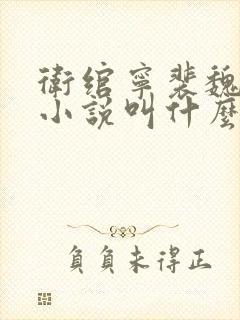 衛綰寧裴魏
小說叫什麼
負負未得正